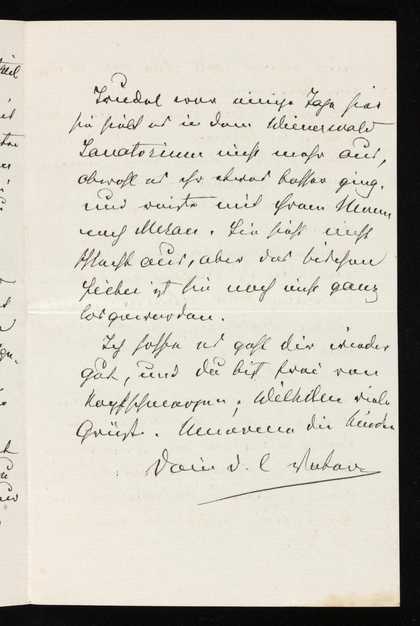 Trudel war einige Tage hier
sie hielt es in dem Wienerwald
Sanatorium nicht mehr aus,
obwohl es ihr etwas besser ging,
und reiste mit ihrem Mann
nach Meran. Sie sieht nicht
schlecht aus, aber das bischen
Fieber ist sie noch nicht ganz
losgeworden.
Ich hoffe es geht dir wieder
gut, und du bist frei von
Kopfschmerzen, Wilhelm viele
Grüße. Umarme die Kinder
Dein d. l. Vater